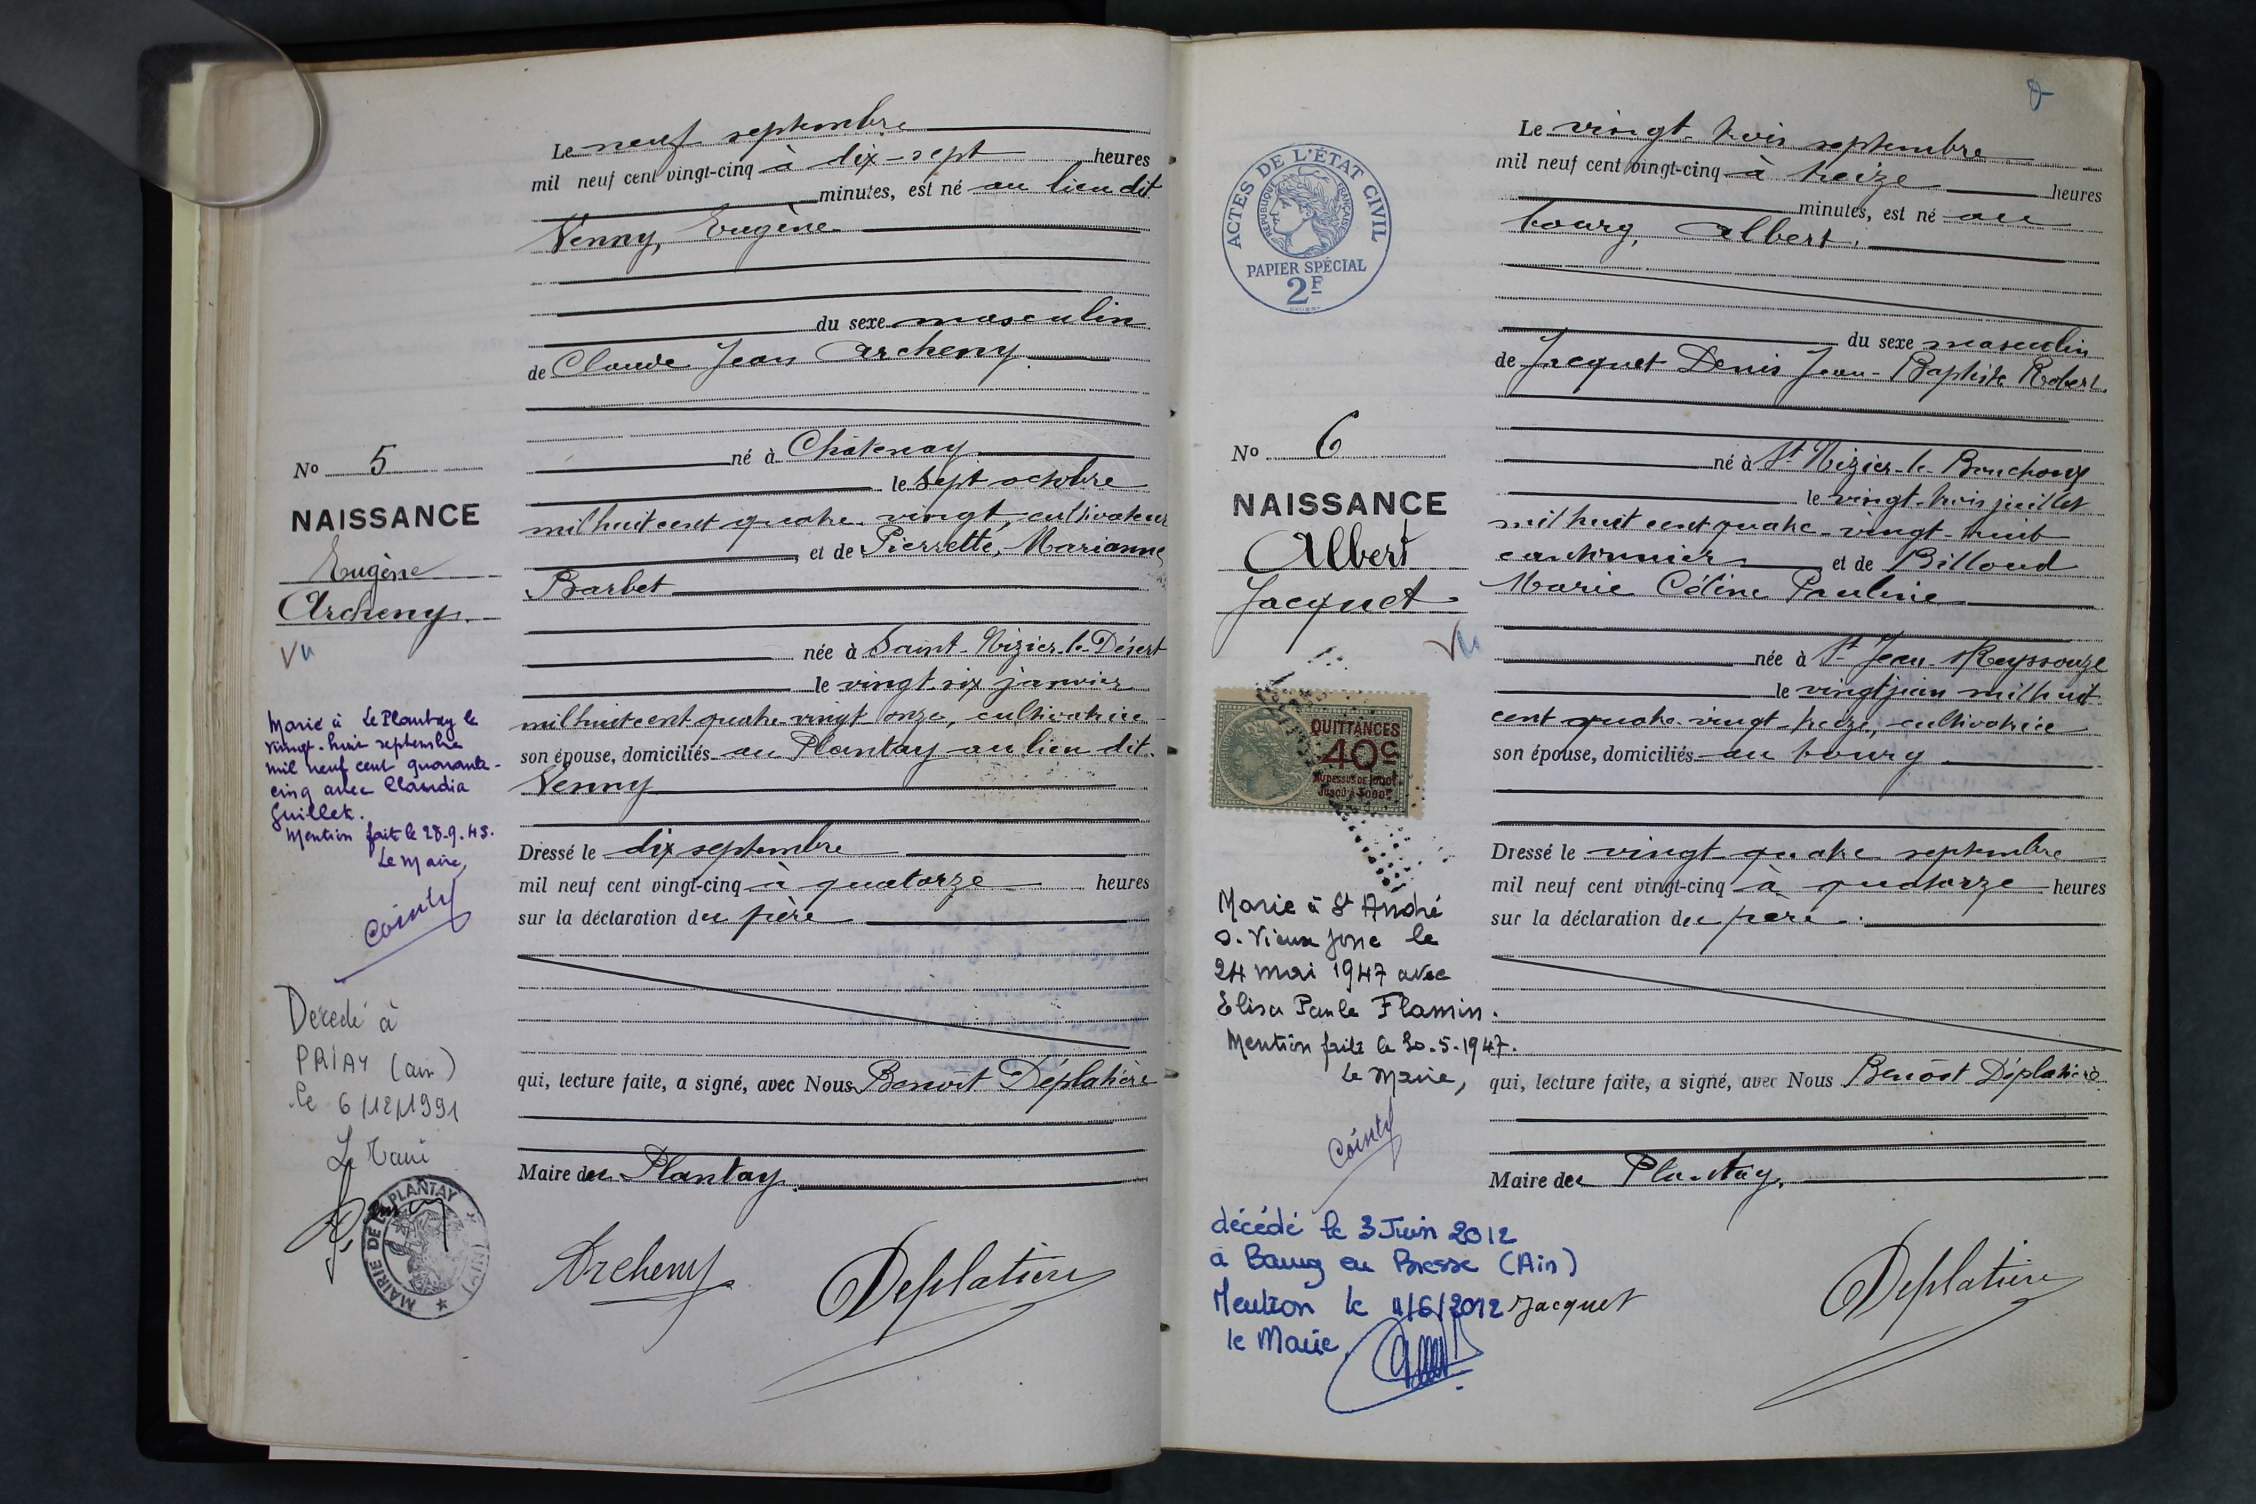 Le neuf septembre
mil neuf cent vingt-cinq à dix-sept heures
minutes, est né au lieu dit
Venny, Eugène
du sexe masculin
de Claude Jean Archeny
No 5
NAISSANCE
Eugène
Archeny
Vu
né à Châtenay
le sept octobre
mil huit cent quatre-vingt, cultivateur
et de Pierrette, Marianne
Barbet
née à Saint-Nizier-le-Désert
le vingt-six janvier
mil huit cent quatre-vingt onze, cultivatrice
son épouse, domiciliés au Plantay au lieu dit
Venny
Dressé le dix septembre
mil neuf cent vingt-cinq à quatorze heures
sur la déclaration du père
qui, lecture faite, a signé, avec Nous Benoît Déplatière
Maire du Plantay.
Archeny
Deplatière
Marié à Le Plantay le
vingt-huit septembre
mil neuf cent quarante-
cinq avec Claudia
Guillet.
Mention faite le 28.9.45.
Le Maire,
Cointy
Décédé à
PRIAY (ain)
le 6/12/1991
Le Maire
MAIRIE DE LE PLANTAY (AIN)
Le vingt-trois septembre
mil neuf cent vingt-cinq à treize heures
minutes, est né au
bourg, Albert.
du sexe masculin
de Jacquet Denis Jean-Baptiste Robert
ACTES DE L'ÉTAT CIVIL
RÉPUBLIQUE FRANÇAISE
PAPIER SPÉCIAL
2F
No 6
NAISSANCE
Albert
Jacquet
Vu
né à St Nizier-le-Bouchoux
le vingt-trois juillet
mil huit cent quatre-vingt-huit
cantonnier et de Billoud
Marie Céline Pauline
née à St Jean s/Reyssouze
le vingt juin mil huit
cent quatre-vingt-treize, cultivatrice
son épouse, domiciliés au bourg
Dressé le vingt-quatre septembre
mil neuf cent vingt-cinq à quatorze heures
sur la déclaration du père.
qui, lecture faite, a signé, avec Nous Benoît Déplatière
Maire du Plantay.
Jacquet
Deplatière
QUITTANCES
40c
AU DESSUS DE 1000F
JUSQU'À 3000F
Marié à St André
s. Vieux Jonc le
24 mai 1947 avec
Elisa Paule Flamin.
Mention faite le 30.5.1947.
Le Maire,
Cointy
décédé le 3 Juin 2012
à Bourg en Bresse (Ain)
Mention le 11/6/2012
le Maire,